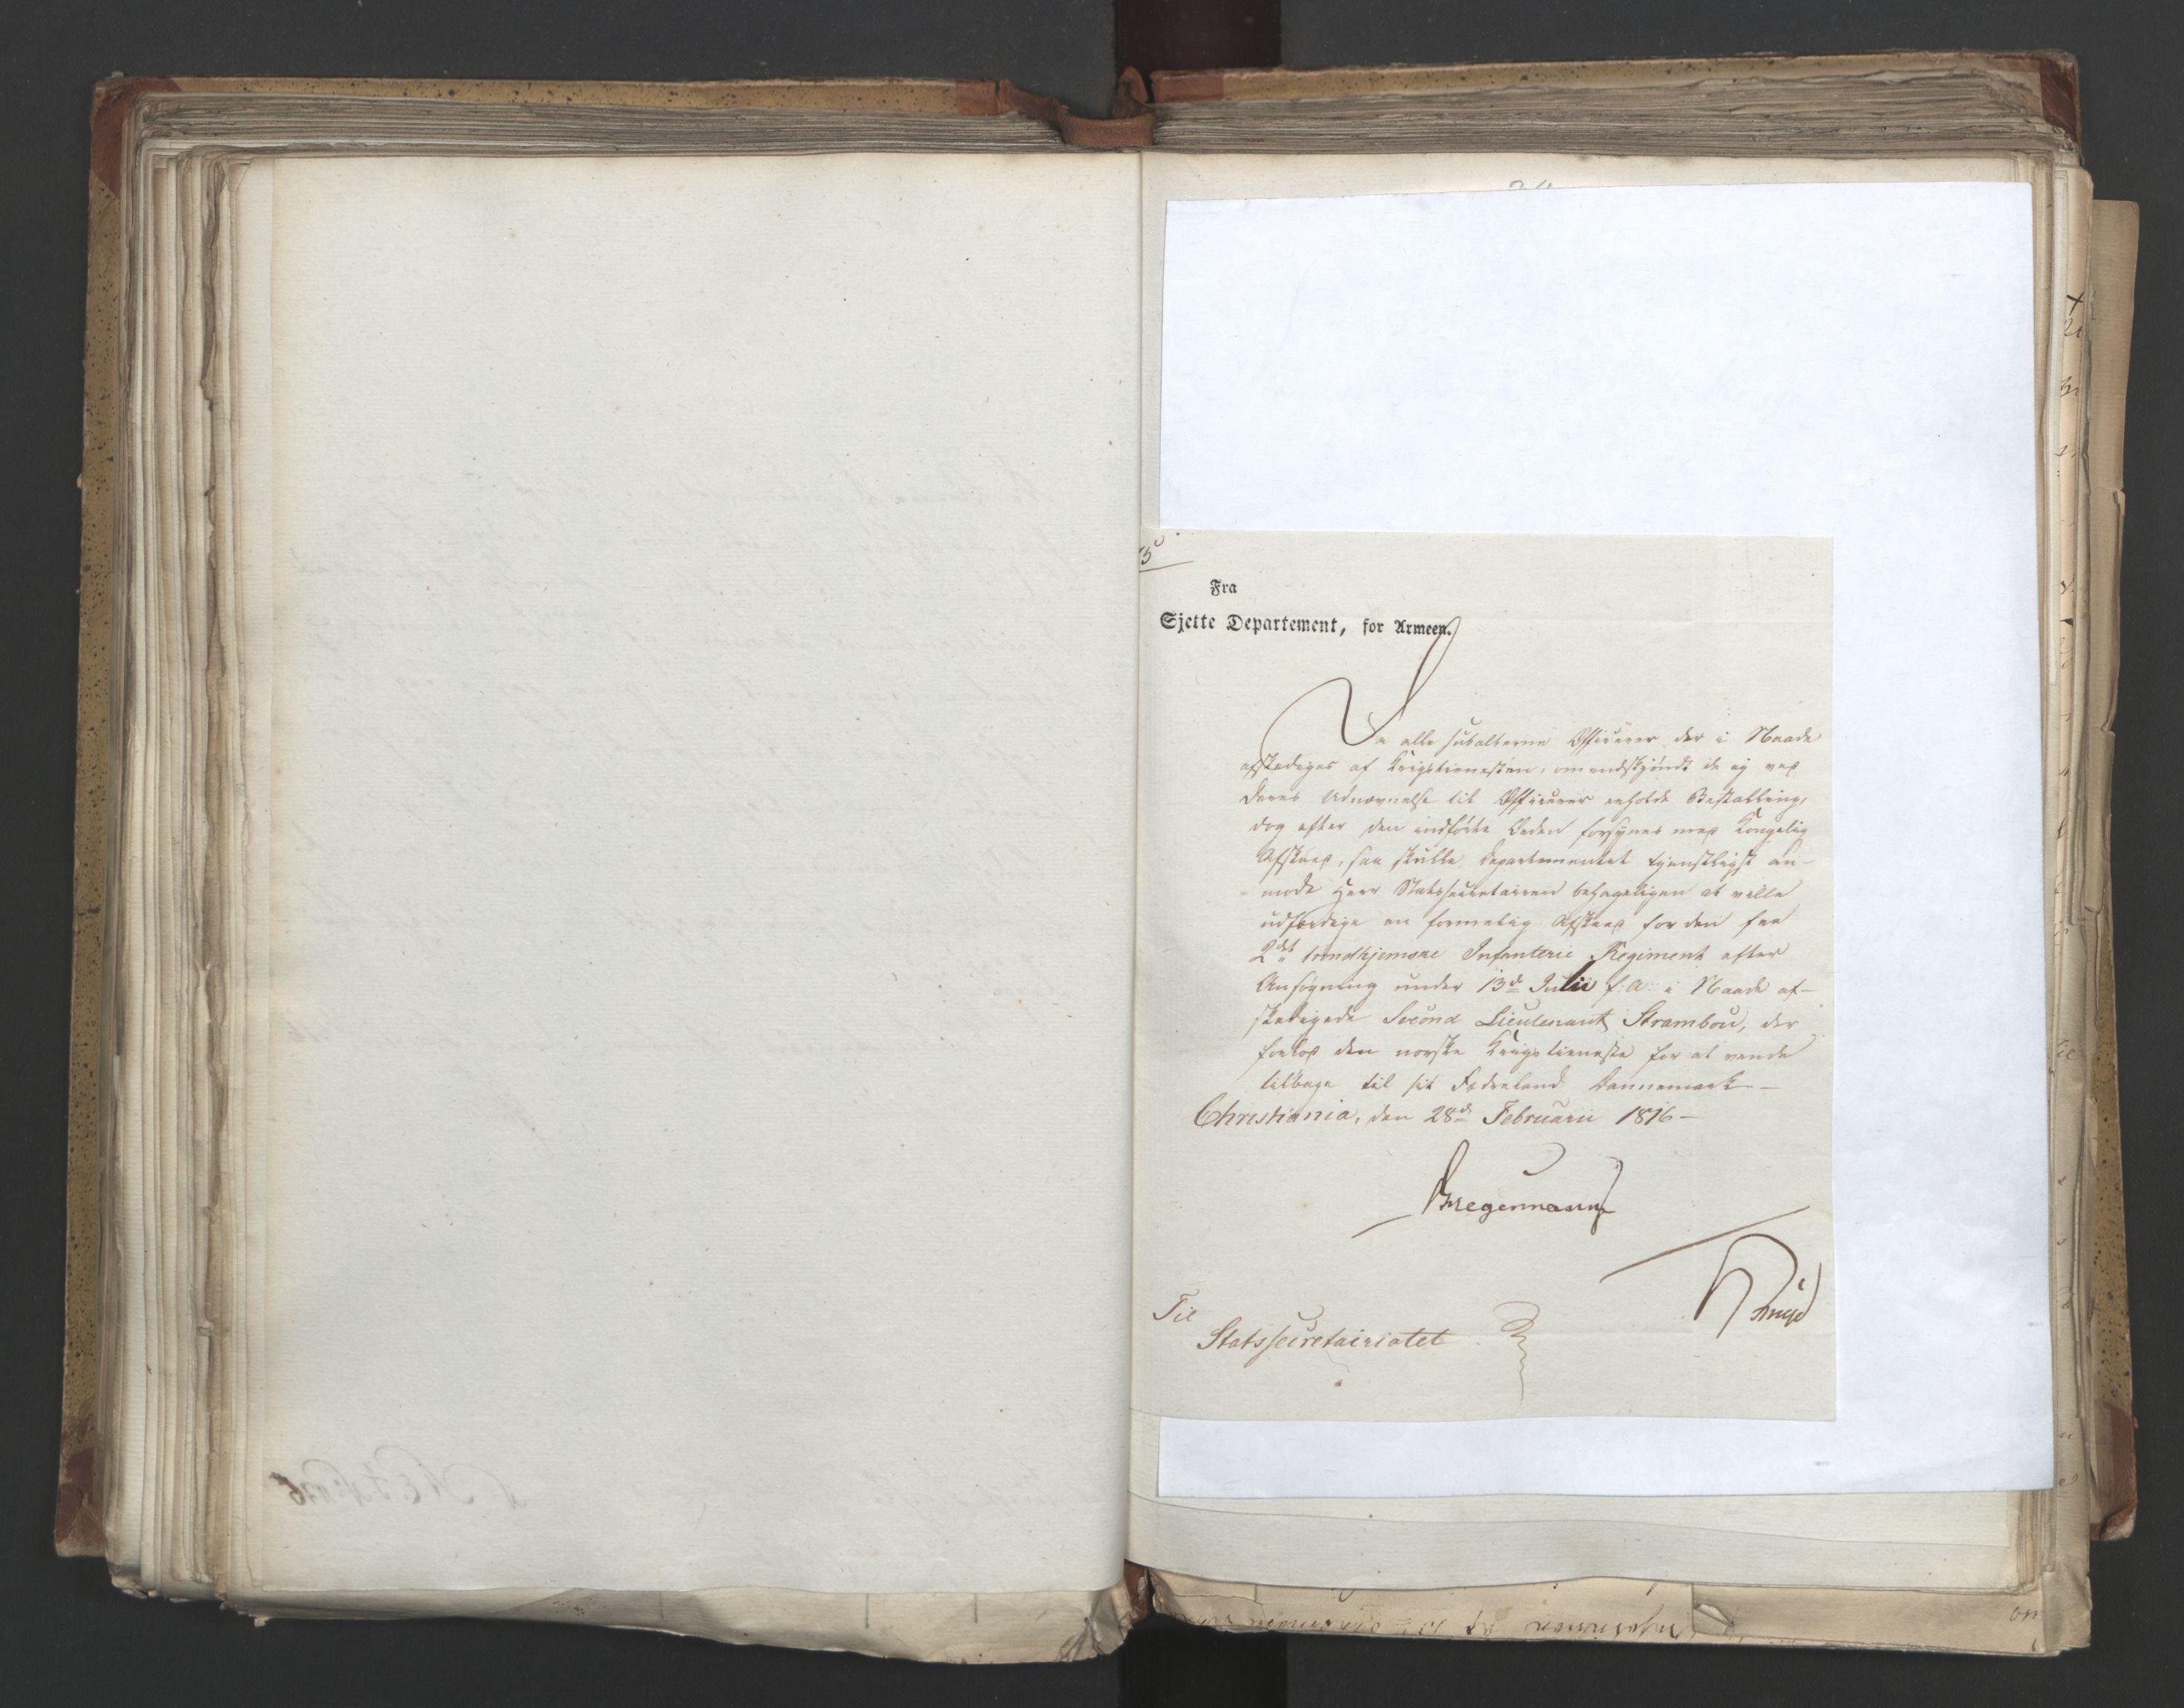 Fra
Sjette Departement, for Armeen.
Da alle subalterne Officerer der i Naade
afskediges af Krigstienesten, omendskjöndt de ej ved
deres Udnævnelse til Officerer erholde Bestalling,
dog efter den indförte Orden forsynes med Kongelig
Afskeed, saa skulle Departementet tjenstligst an-
mode Herr Statssecretairen behageligen at ville
udfærdige en formelig Afskeed for den fra
2det trondhjemske Infanterie Regiment efter
Ansögning under 13de Julii f. A. i Naade af-
skedigede Second Lieutenant Strambou, der
forlod den norske Krigstieneste for at vende
tilbage til sit Fædreland Dannemark –
Christiania, den 28de Februarii 1816 –
Bregenmann
Til
Statssecretairiatet